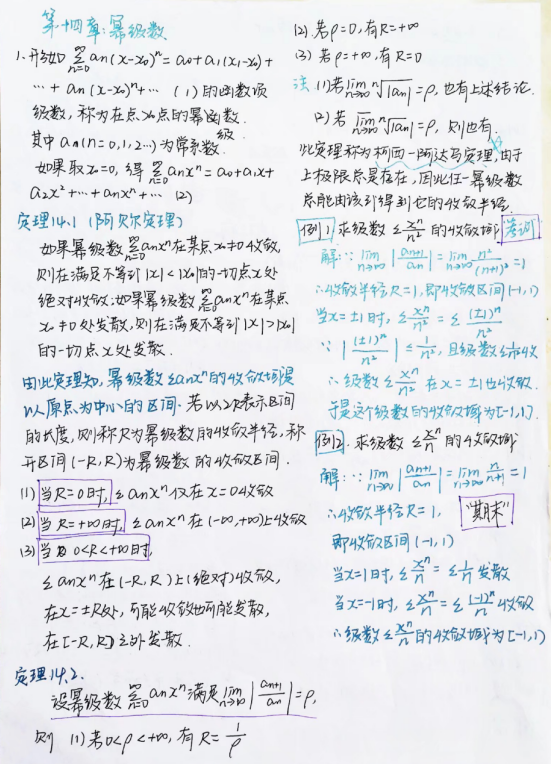 第十四章：幂级数
1.形如 ∑_{n=0}^{∞} an(x-x0)^n = a0+a1(x1-x0)+
… + an(x-x0)^n+… (1)的函数项
级数，称为在点x0点的幂函数.级
其中an(n=0,1,2…)为常系数.
如果取x0=0, 得 ∑_{n=0}^{∞} anx^n = a0+a1x+
a2x^2+…+anx^n+… (2)
定理14.1 (阿贝尔定理)
如果幂级数∑_{n=0}^{∞}anx^n在某点x0≠0收敛,
则在满足不等到|x|<|x0|的一切点x处
绝对收敛;如果幂级数∑_{n=0}^{∞}anx^n在某点
x0≠0处发散,则在满足不等到|x|>|x0|
的一切点x处发散.
由此定理知,幂级数∑anx^n的收敛域是
以原点为中心的区间.若以2R表示区间
的长度,则称R为幂级数的收敛半径,称
开区间(-R,R)为幂级数的收敛区间.
(1)当R=0时,∑anx^n仅在x=0收敛
(2)当R=+∞时,∑anx^n在(-∞,+∞)上收敛
(3)当0<R<+∞时,
∑anx^n在(-R,R)上(绝对)收敛,
在x=±R处,可能收敛也可能发散,
在[-R,R]之外发散.
定理14.2.
设幂级数∑_{n=0}^{∞}anx^n满足lim_{n→∞}|an+1/an|=ρ,
则 (1)若0<ρ<+∞,有R=1/ρ
(2)若ρ=0,有R=+∞
(3)若ρ=+∞,有R=0
注 (1)若lim_{n→∞} ⁿ√|an|=ρ,也有上述结论.
(2)若 \overline{lim}_{n→∞} ⁿ√|an|=ρ, 则也有
此定理称为柯西—阿达马定理,由于
上极限总是存在,因此任一幂级数
总能由该到得到它的收敛半径.
例1 求级数∑x^n/n^2的收敛域
解:∵lim_{n→∞}|an+1/an|=lim_{n→∞} n^2/(n+1)^2=1
∴收敛半径R=1,即收敛区间(-1,1)
当x=±1时,∑x^n/n^2=∑(±1)^n/n^2
∵|(±1)^n/n^2|≤1/n^2,且级数∑1/n^2收敛
∴级数∑x^n/n^2在x=±1也收敛.
于是这个级数的收敛域为[-1,1].
例2. 求级数∑x^n/n的收敛域
解:∵lim_{n→∞}|an+1/an|=lim_{n→∞} n/n+1=1
∴收敛半径R=1, "期末"
即收敛区间(-1,1)
当x=1时,∑x^n/n=∑1/n发散
当x=-1时,∑x^n/n=∑(-1)^n/n收敛
∴级数∑x^n/n的收敛域为[-1,1)